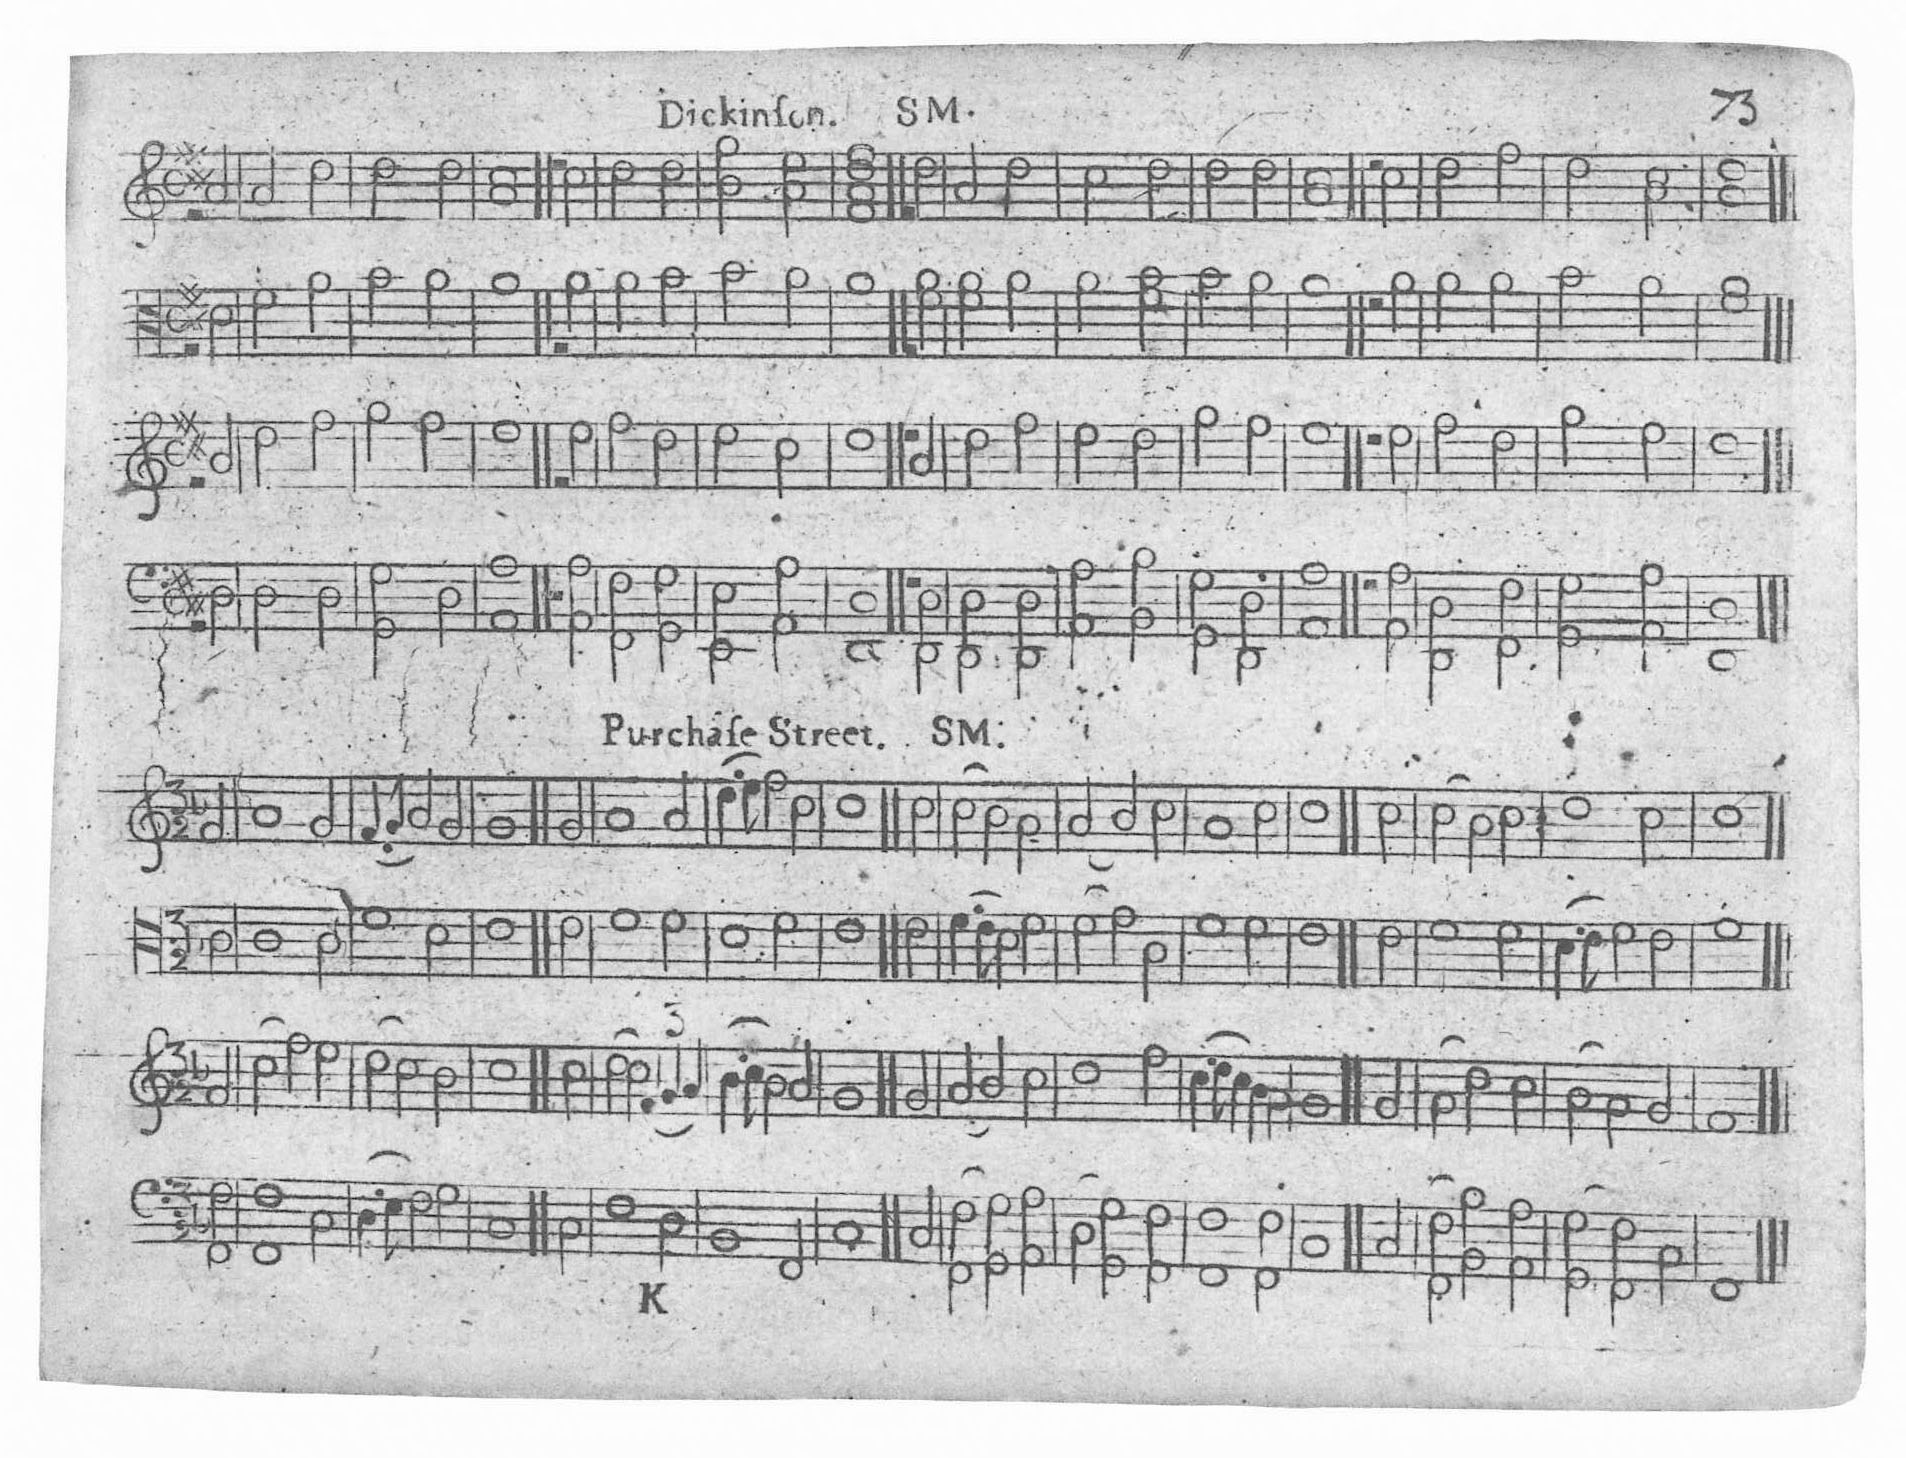 Dickinſon. SM.
73
Purchaſe Street. SM.
3
K